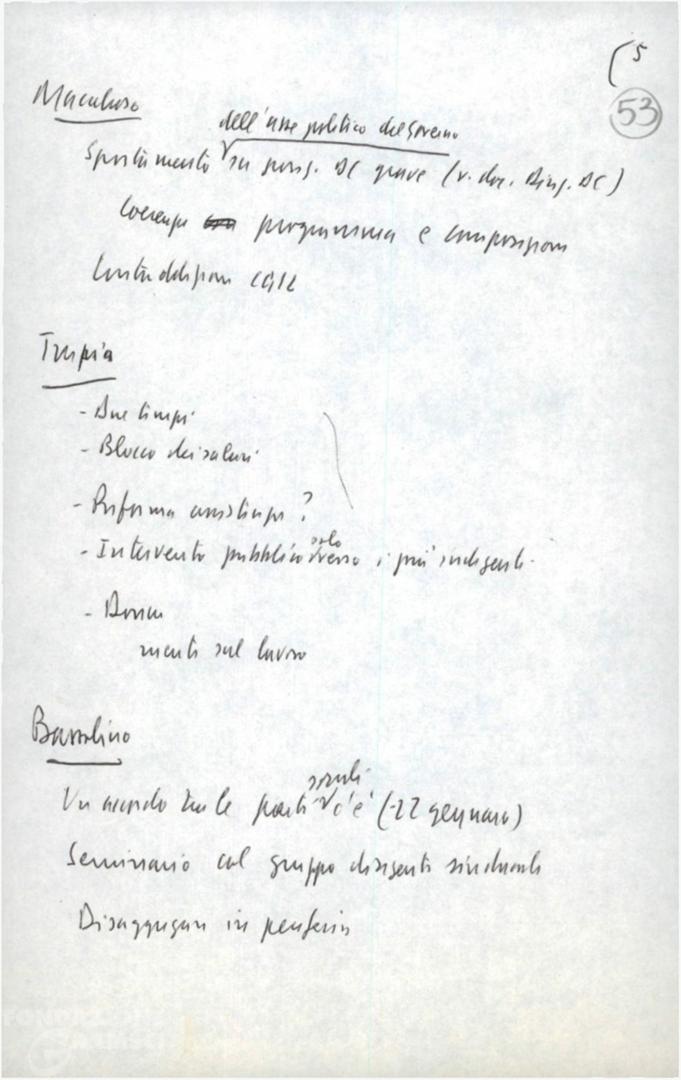 (5
53
Macaluso
dell'asse politico del Governo
Spostamento su posiz. DC grave (v. doc. Ding. DC)
Coerenza programma e composizione
Contraddizioni CGIL
Trupia
- Due tempi
- Blocco dei salari
- Riforma assistenza?
solo
- Intervento pubblico verso i più indigenti
- Donne
niente sul lavoro
Bassolino
sociali
Un accordo tra le parti c'è (-22 gennaio)
Seminario col gruppo dirigente sindacale
Disaggregazione in periferia
FONDAZ